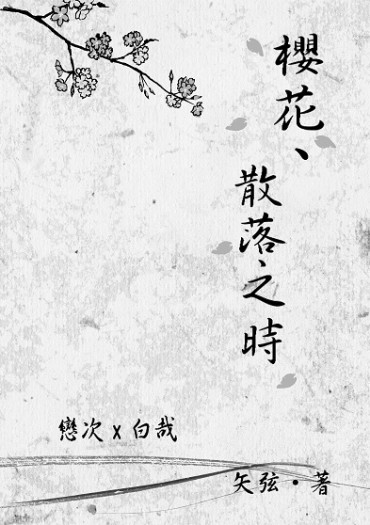 櫻花、
散落之時
戀次 x 白哉
矢弦・著